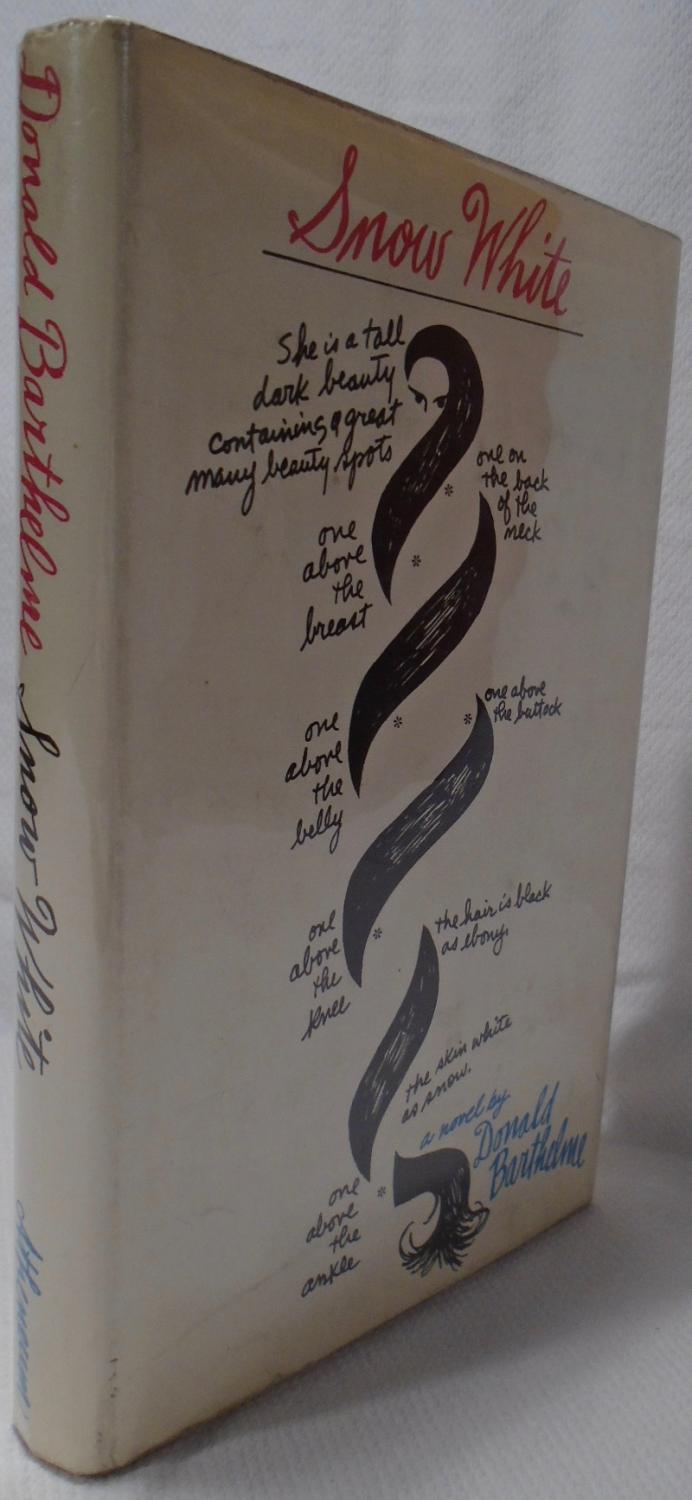 Donald Barthelme Snow White Atheneum
Snow White
She is a tall
dark beauty
containing a great
many beauty spots
one on
the back
of the
neck
one
above
the
breast
one above
the buttock
one
above
the
belly
the hair is black
as ebony,
one
above
the
knee
the skin white
as snow.
a novel by
Donald
Barthelme
one
above
the
ankle